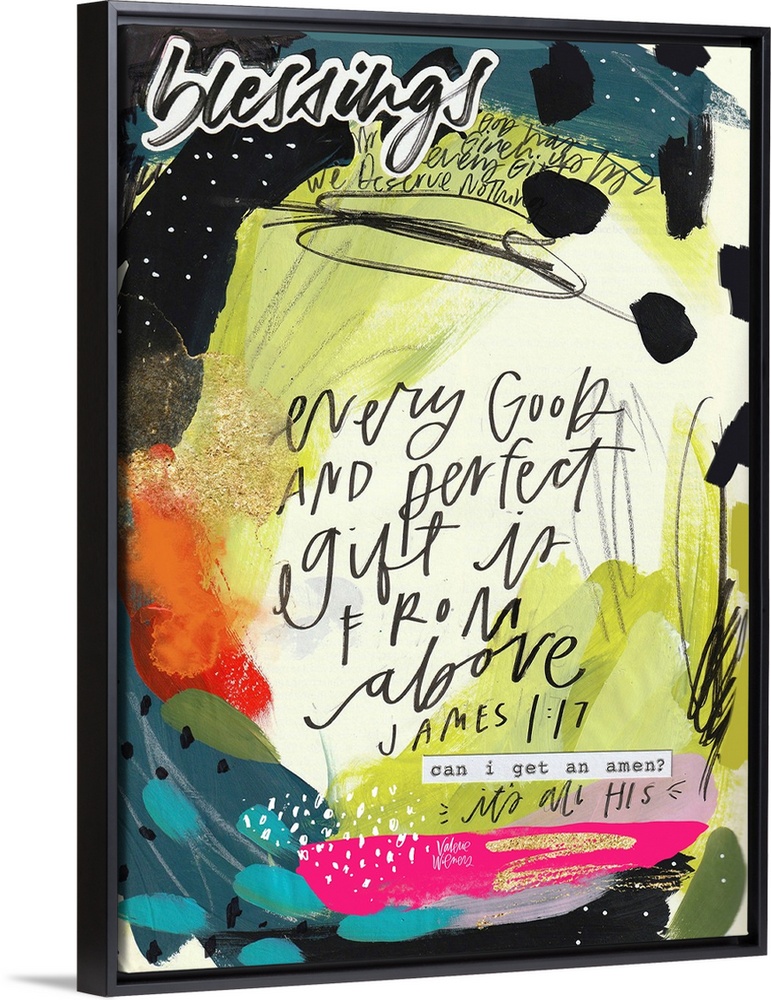 blessings
God has
given us his
every
we Deserve Nothing
every Good
AND perfect
gift is
FROM
above
JAMES 1:17
can i get an amen?
it's all HIS
Valerie
Wieners